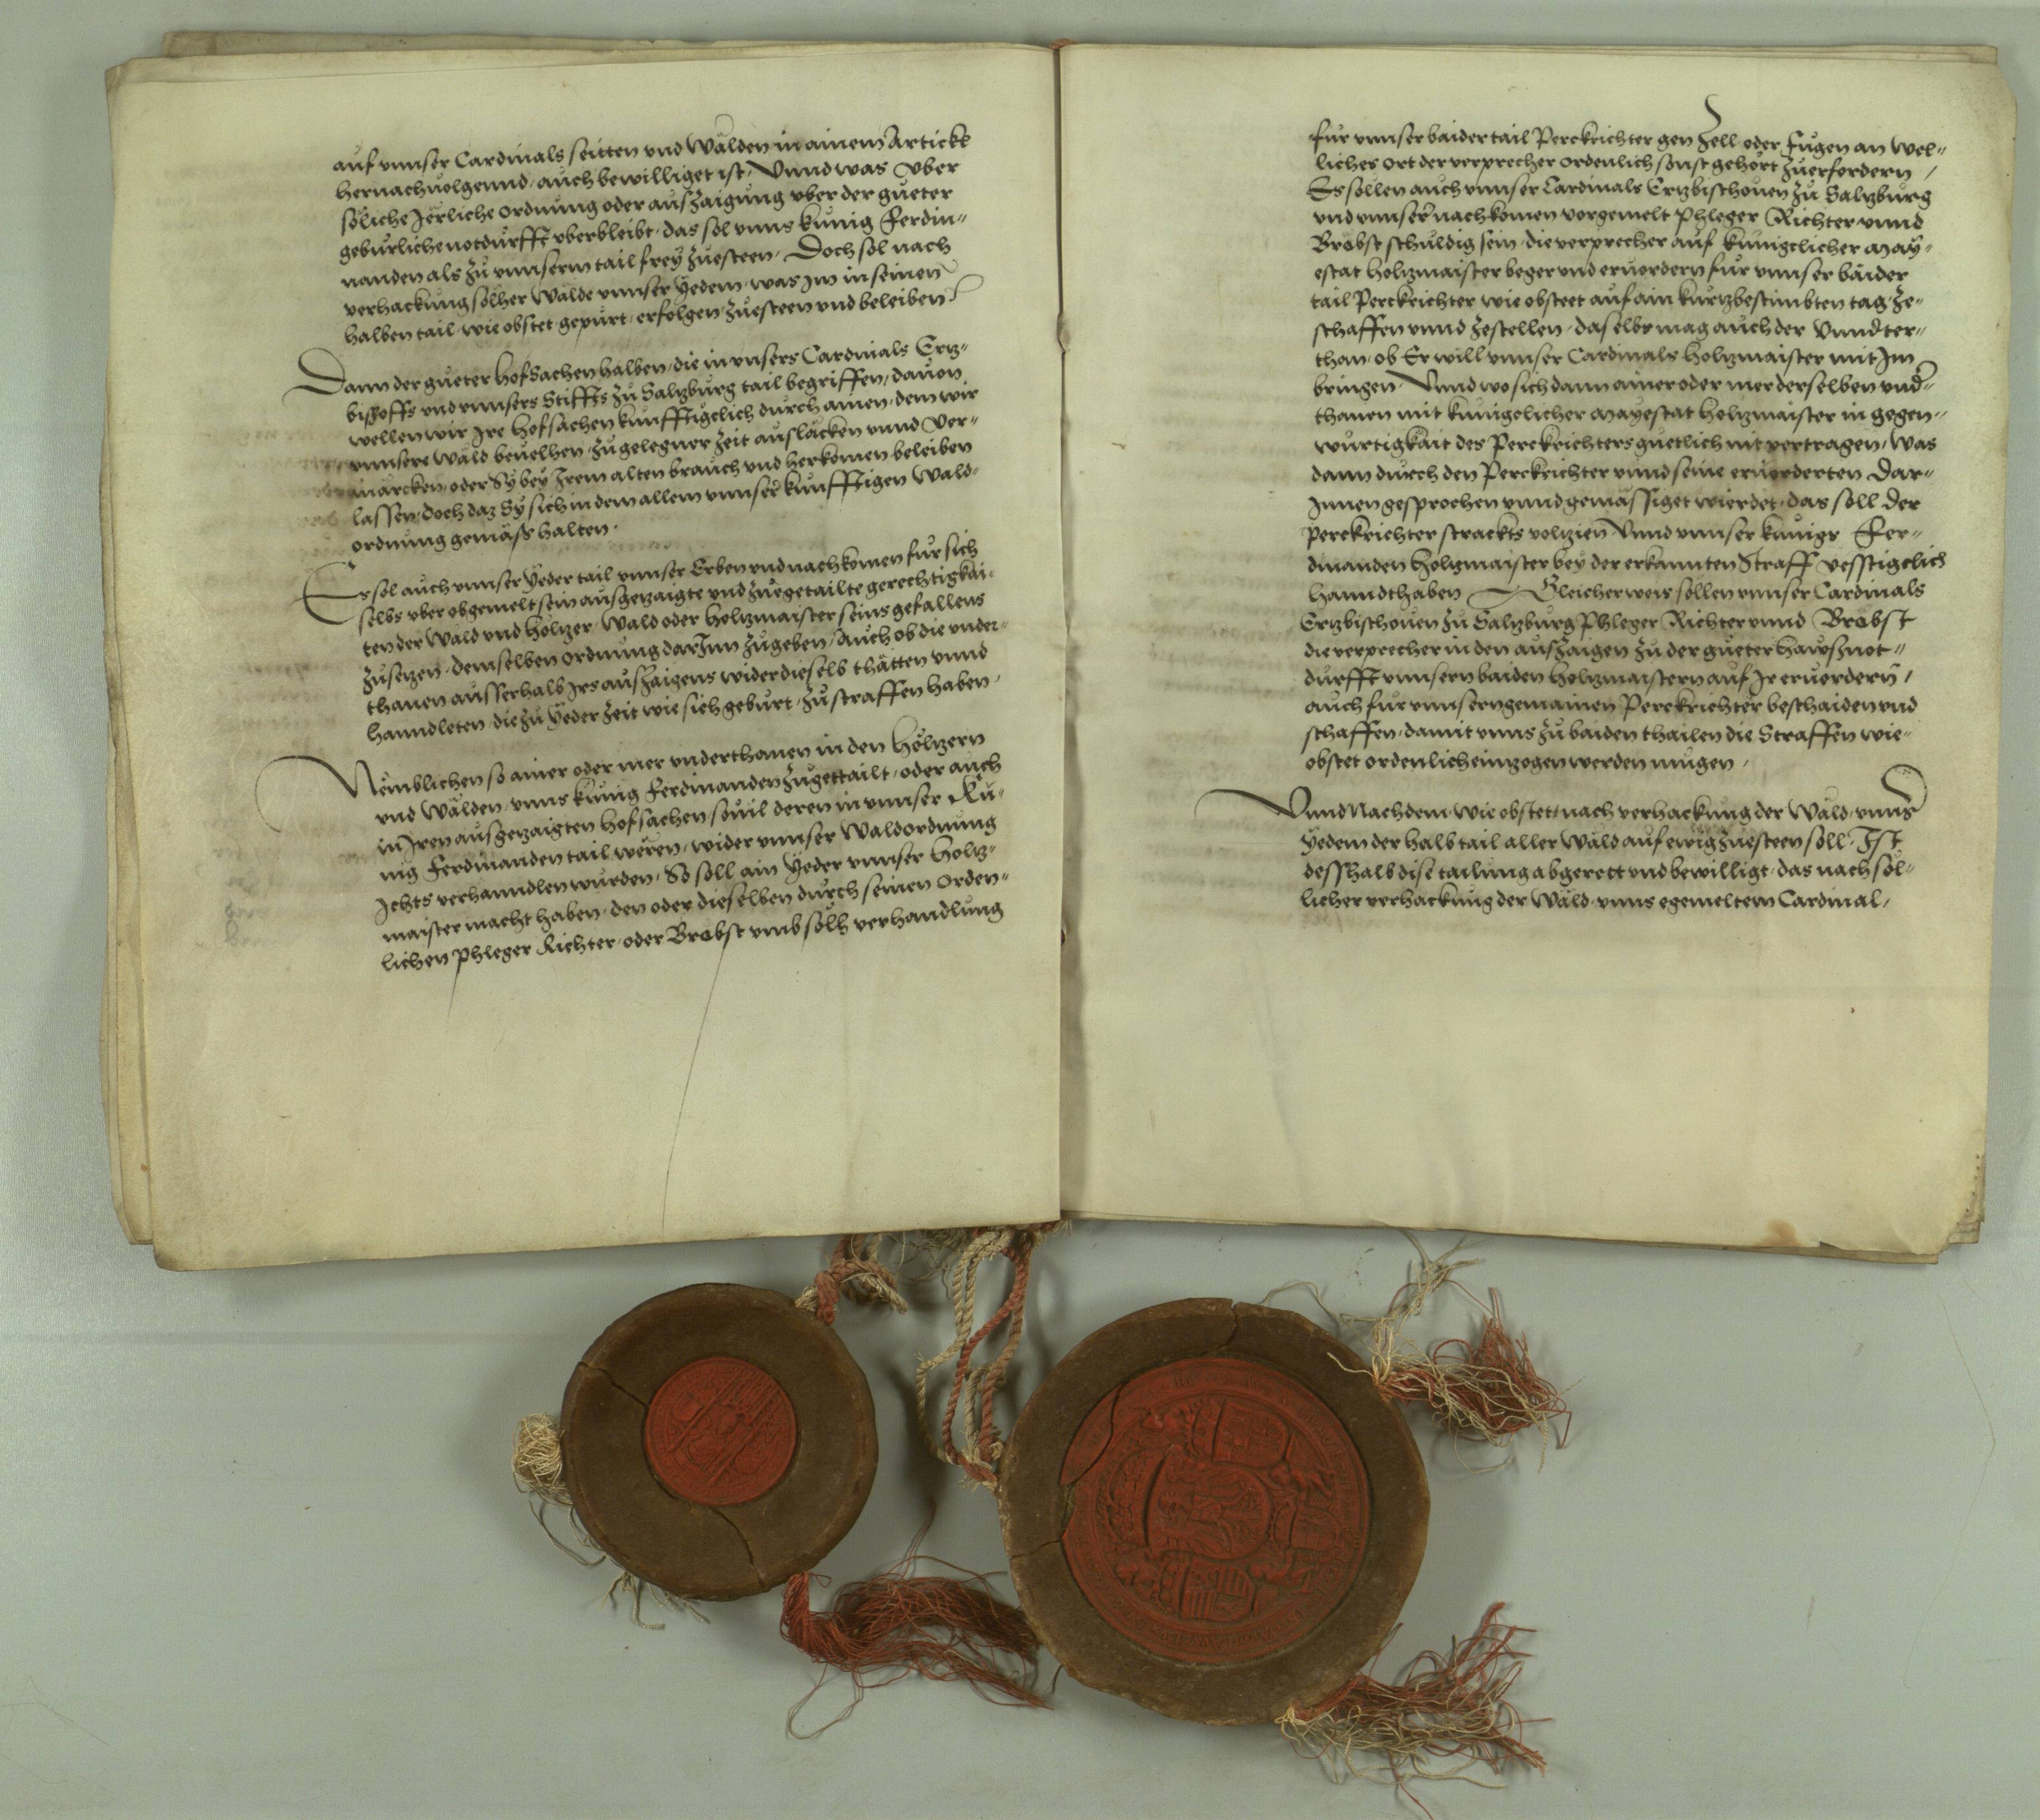 auf vnnser Cardinals seitten vnd Wälden in ainem Artickl
hernachuolgennd, auch bewilliget ist, Vnnd was vber
söliche Jerliche ordnung oder auszaigung vber der gueter
geburliche notdurfft vberbleibt, das sol vnns kunig Ferdin-
nanden als zu vnnserm tail frey zuesteen, Doch sol nach
verhackung sölher Wälde vnnser Yedem, was Im in seinen
halben tail, wie obstet, gepurt, erfolgen, zuesteen vnd beleiben
Dann der gueter hofsachen halben, die in vnsers Cardinals Ertz-
bischoffs vnd vnnsers Stiffts zu Saltzburg tail begriffen, dauon
wellen wir Jre hofsachen kunfftigclich durch ainen, dem wir
vnnsere Wäld beuelhen, zu gelegner zeit auslacken vnnd Ver-
märcken, oder Sy bey Jrem alten brauch vnd herkomen beleiben
lassen, doch daz Sy sich in dem allem vnnser kunfftigen Wald-
ordnung gemäss halten.
Es sol auch vnnser Yeder tail vnnser Erben vnd nachkomen fur sich
selbs vber obgemelt sein ausgezaigte vnd zuegetailte gerechtigkai-
ten der Wäld vnd höltzer, Wald oder holtzmaister seins gefallens
zusetzen, demselben ordnung darJnn zugeben, Auch ob die vnder-
thanen ausserhalb Jrs auszaigens wider dieselb thätten vnnd
hanndleten die zu Yeder zeit wie sich geburt, zu straffen haben,
Nemblichen so ainer oder mer vnderthanen in den höltzern
vnd Wälden, vnns kunig Ferdinanden zugettailt, oder auch
in Jren ausgezaigten hofsachen souil deren in vnnser Ku-
nig Ferdinanden tail wëren, wider vnnser Waldordnung
Jchts verhanndlen wurden, So soll ain Yeder vnnser holtz-
maister macht haben, den oder dieselben durch seinen orden-
lichen phleger Richter, oder Brobst vmb sölh verhandlung
fur vnnser baider tail Perckrichter gen Zell oder Fugen an wel-
liches ort der verprecher ordenlich sonst gehört zuerfordern,
Es sollen auch vnnser Cardinals Ertzbischouen zu Saltzburg
vnd vnnser nachkomen vorgemelt phleger Richter vnnd
Brobst schuldig sein, die verprecher auf kunigclicher May-
estat holtzmaister beger vnd eruordern fur vnnser baider
tail Perckrichter wie obsteet auf ain kurtz bestimbten tag ze-
schaffen vnnd zestellen, daselbs mag auch der Vnndter-
than, ob Er will vnnser Cardinals holtzmaister mit Im
bringen, Vnnd wo sich dann ainer oder mer derselben vnd-
thanen mit kunigclicher Mayestat holtzmaister in gegen-
wurtigkait des Perckrichters guetlich nit vertragen, was
dann durch den Perckrichter vnnd seine eruorderten dar-
Jnnen gesprochen vnnd gemässiget wierdet, das soll der
perckrichter strackts voltzien Vnnd vnnser kunigr Fer-
dinanden holtzmaister bey der erkannten Straff vesstigclich
hanndthaben Gleicherweis sollen vnnser Cardinals
Ertzbischouen zu Saltzburg Phleger Richter vnnd Brobst
die verprecher in den auszaigen zu der gueter hausnot-
durfft vnnsern baiden holtzmaistern auf Jr eruordern,
auch fur vnnsern gemainen Perckrichter beschaiden vnd
schaffen, damit vnns zu baiden thailen die Straffen wie-
obstet ordenlich eintzogen werden mugen,
Vnnd Nachdem, wie obstet, nach verhackung der Wäld, vnns
Yedem der halb tail aller Wäld auf ewig zuesteen soll, Ist
desshalb dise tailung abgerett vnd bewilligt, das nach söl-
licher verhackung der Wäld, vnns egemeltem Cardinal,